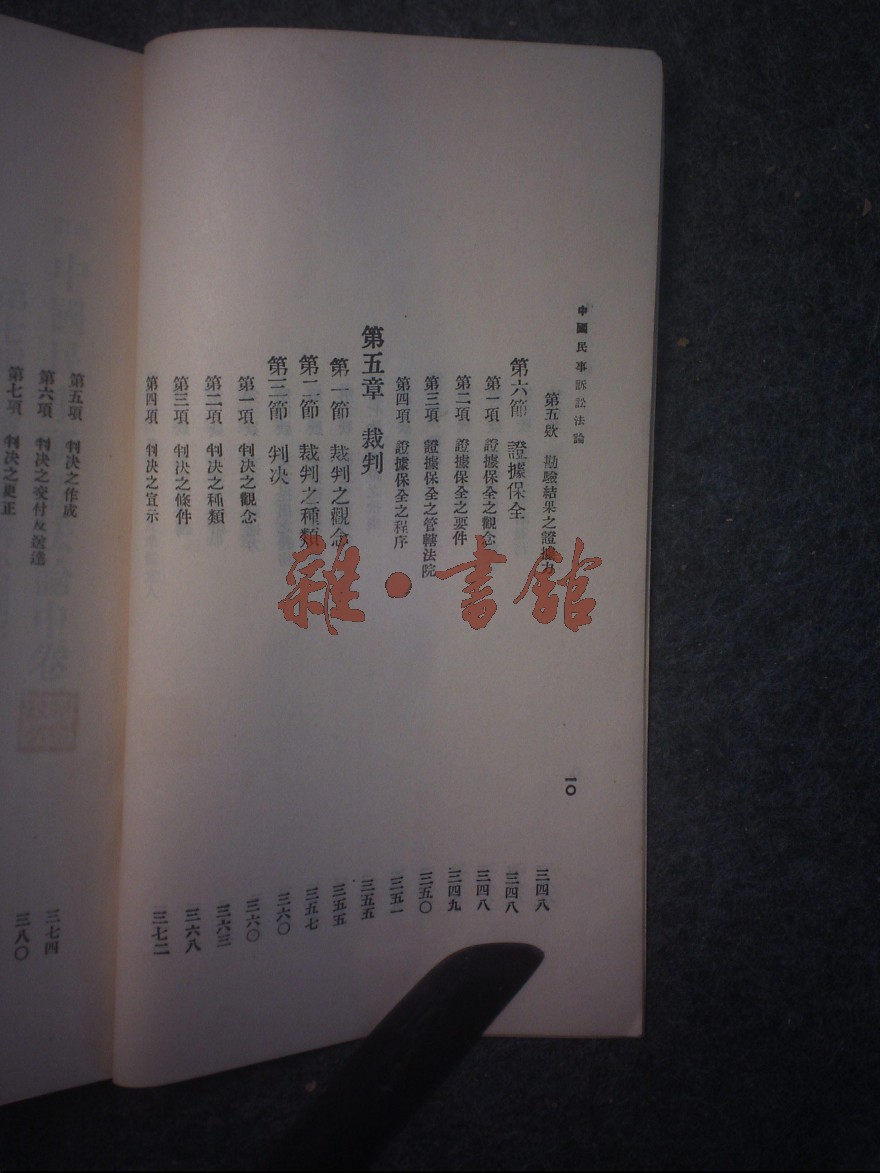 中國民事訴訟法論
一〇
第五欵 勘驗結果之證據力 三四八
第六節 證據保全 三四八
第一項 證據保全之觀念 三四八
第二項 證據保全之要件 三四九
第三項 證據保全之管轄法院 三五〇
第四項 證據保全之程序 三五一
第五章 裁判 三五五
第一節 裁判之觀念 三五五
第二節 裁判之種類 三五七
第三節 判决 三六〇
第一項 判决之觀念 三六〇
第二項 判决之種類 三六三
第三項 判决之條件 三六八
第四項 判决之宣示 三七二
第五項 判决之作成
第六項 判决之交付及送達 三七四
第七項 判决之更正 三八〇
雜·書館